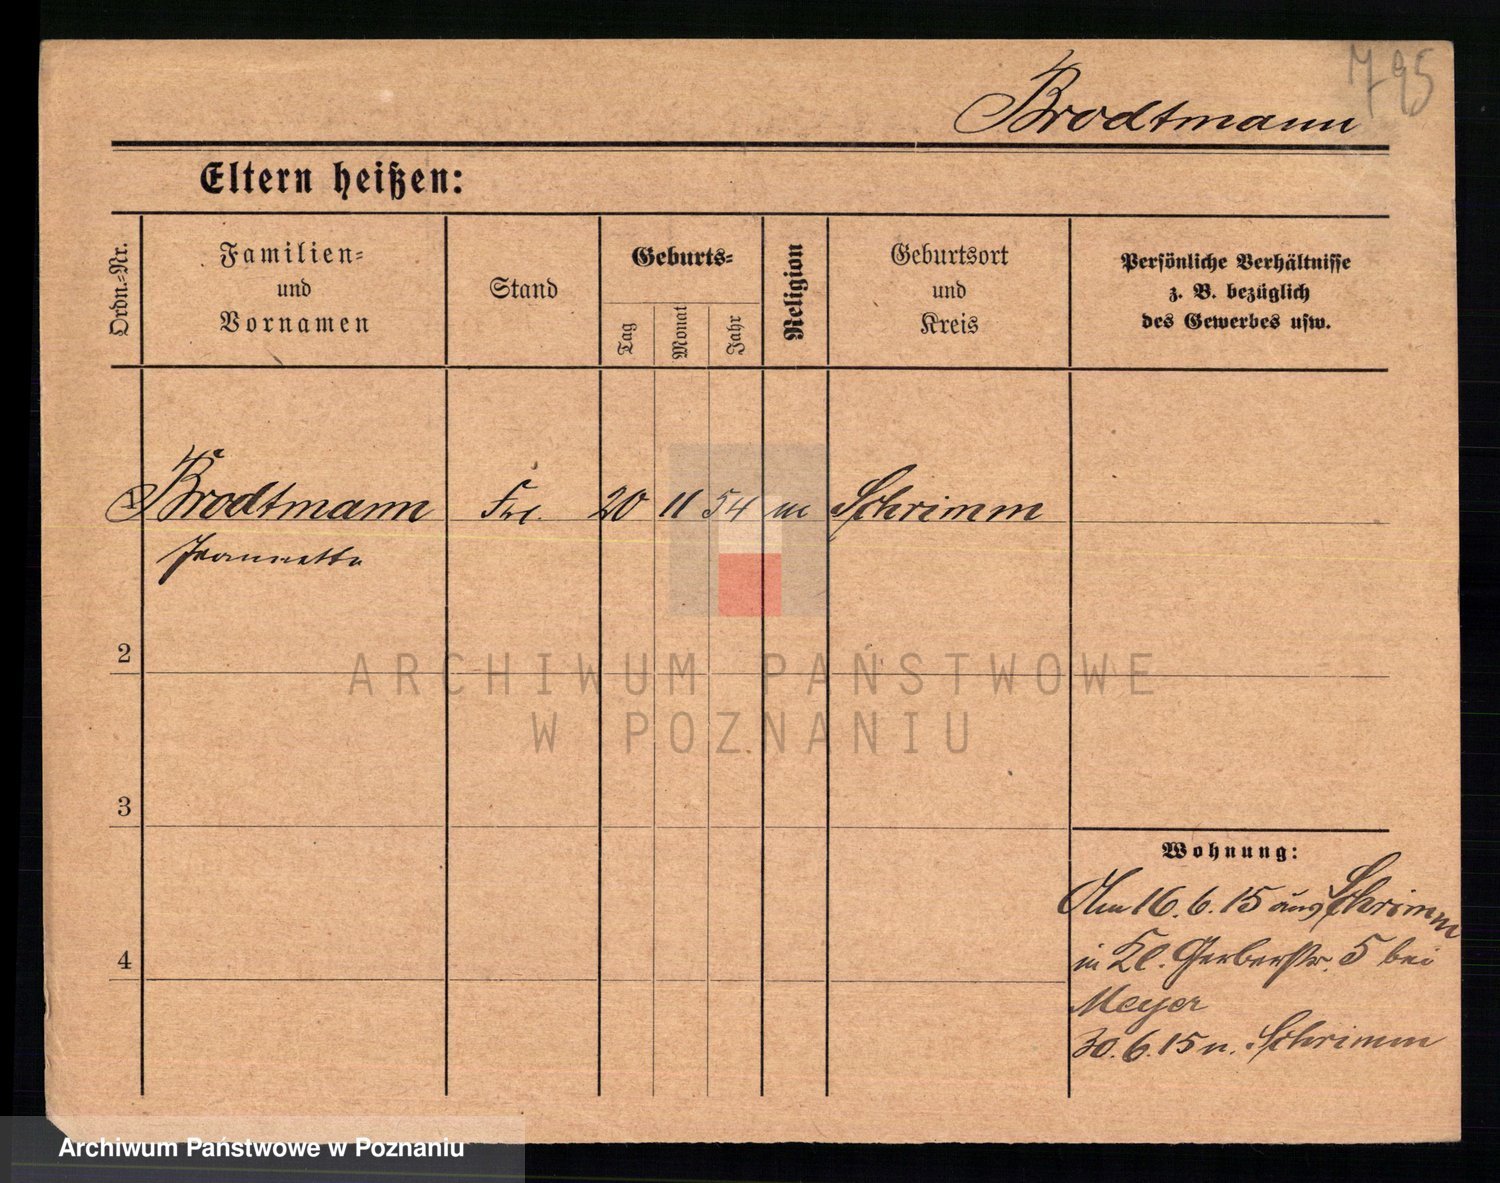 795
Brodtmann
Eltern heißen:
Ordn.-Nr.
Familien-
und
Vornamen
Stand
Geburts-
Tag
Monat
Jahr
Religion
Geburtsort
und
Kreis
Persönliche Verhältnisse
z. B. bezüglich
des Gewerbes usw.
1 Brodtmann Frl. 20 11 54 m Schrimm
Jeannette
2
3
4
Wohnung:
Am 16.6.15 aus Schrimm
in Kl. Gerberstr. 5 bei
Meyer
30.6.15 n. Schrimm
ARCHIWUM PAŃSTWOWE
W POZNANIU
Archiwum Państwowe w Poznaniu